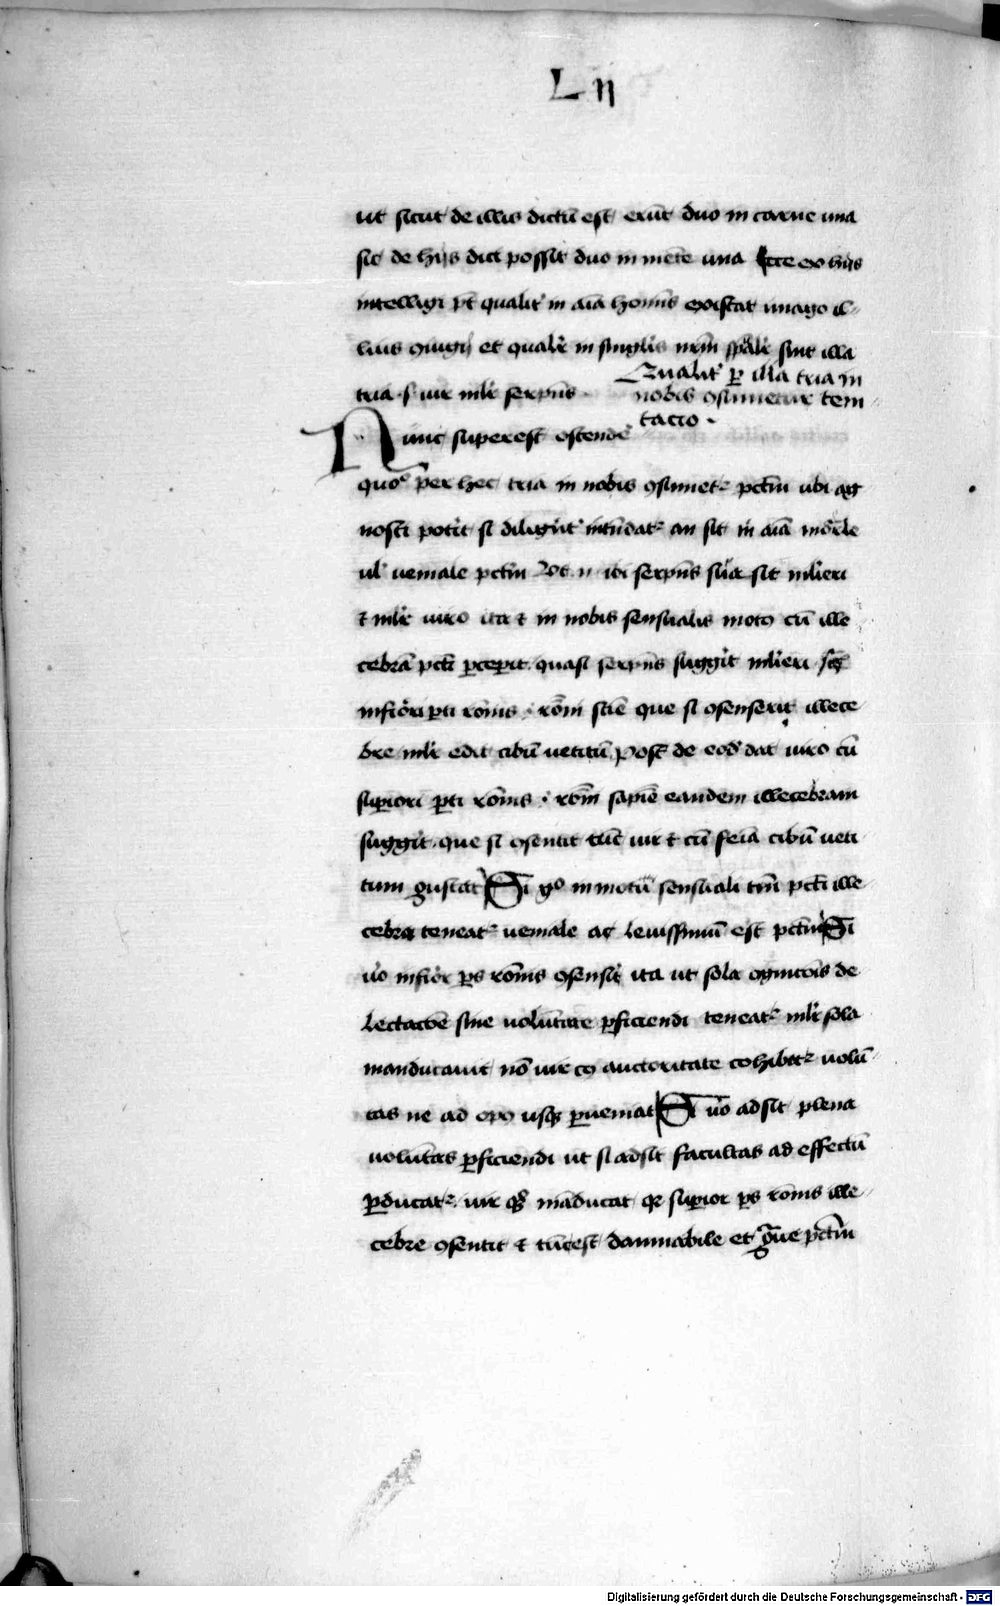 L ij
ut sicut de illis dictū est erūt duo in carne una
sic de hijs dici possit duo in mēte una Ecce ex hijs
intelligi pt̄ qualit̓ in aīa homīs existat imago il-
lius ꝯiugij et qualit̓ in singl̓is nrm̄ spūal̓r sint illa
tria .s. vir ml̓r serpn̄s
Qualit̓ ꝑ illa tria in
nobis ꝯsumetur tem
tacio .
Nunc superest ostende̓
quo͛ per hec tria in nobis ꝯsumet᷑ pctm̄ ubi ag
nosci pot̓it si diligūt̓ intēdat᷑ an sit in aīa mor̄le
ul̓ ueniale pctm̄ Vt .n. ibi serpn̄s sua sit ml̓ieri
⁊ ml̓r uiro ita ⁊ in nobis sensualis motꝯ cū ille
cebrā pcti̅ ꝑceperit quasi serpn̄s sugg̓it ml̓ieri scꝫ
infi̓ori ꝑti rōnis .i. rōni sciē que si ꝯsenserit illece
bre ml̓r edit cibū uetitū Post de eod̓ dat uiro cū
suꝑiori ꝑti rōnis .i. rōni sapiē eandem illecebram
sugg̓it que si ꝯsentit tūc uir ⁊ cū feīa cibū ueti
tum gustat Si gͦ in motu sensuali tm̄ pcti̅ ille
cebra teneat᷑ ueniale ac leuissimū est pctm̄ Si
u̓o infi̓or ꝑs rōnis ꝯsens̓it ita ut sola cognicōis de
lectacōe sine uolūtate ꝑficiendi teneat᷑ ml̓r sola
manducauit nō uir cꝯ auctoritate cohibet᷑ uolū
tas ne ad opꝯ usqꝫ ꝑueniat Si u̓o adsit plena
uolūtas ꝑficiendi ut si adsit facultas ad effectū
ꝑducat᷑ uir qꝫ māducat qꝛ suꝑior ꝑs rōnis ille
cebre ꝯsentit ⁊ tūc est damnabile et g̓ue pctm̄
Digitalisierung gefördert durch die Deutsche Forschungsgemeinschaft - DFG